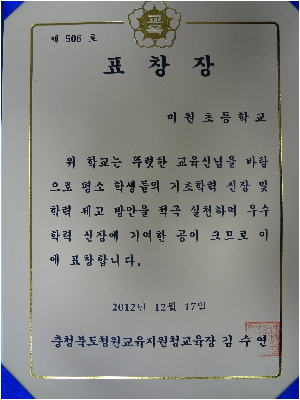 제 506 호
표 창 장
미원초등학교
위 학교는 뚜렷한 교육신념을 바탕
으로 평소 학생들의 기초학력 신장 및
학력 제고 방안을 적극 실천하여 우수
학력 신장에 기여한 공이 크므로 이
에 표창합니다.
2012년 12월 17일
충청북도청원교육지원청교육장 김수연